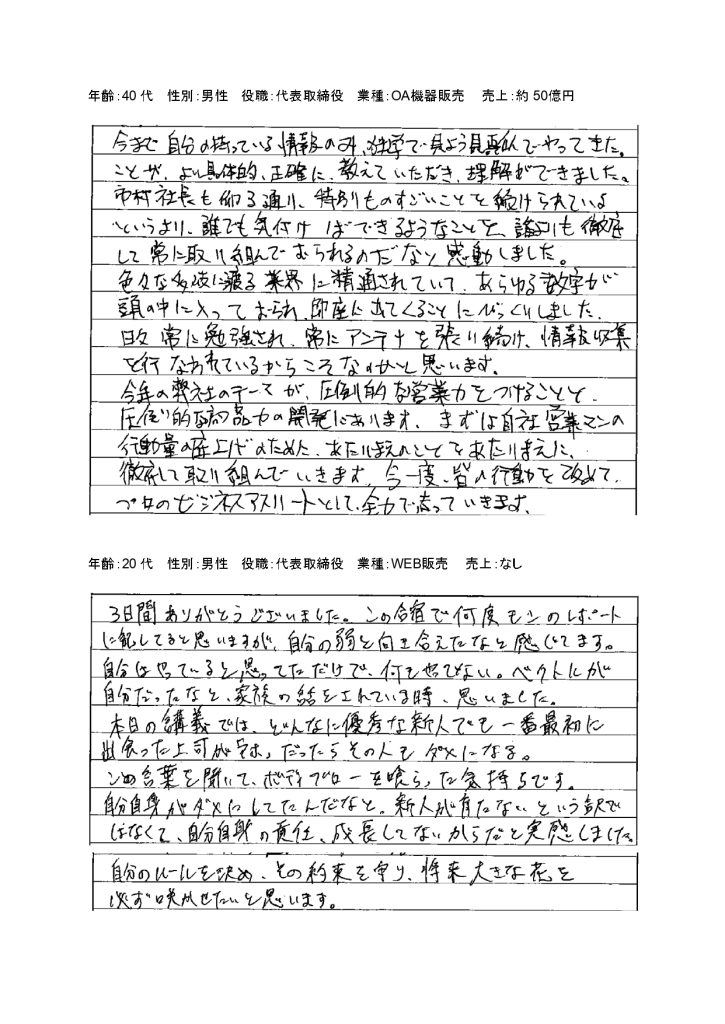 年齢：40代　性別：男性　役職：代表取締役　業種：OA機器販売　売上：約50億円
今まで自分の持っている情報のみ、独学で見よう見真似でやってきた。
ことが、より具体的、正確に、教えていただき、理解ができました。
市村社長も仰る通り、特別ものすごいことを続けられている
というより、誰でも気付けばできるようなことを、誰よりも徹底
して常に取り組んでおられるのだなと感動しました。
色々な多岐に渡る業界に精通されていて、あらゆる数字が
頭の中に入っておられ、即座に出てくることにびっくりしました。
日々常に勉強され、常にアンテナを張り続け、情報収集
を行なわれているからこそなのかと思います。
今年の弊社のテーマが、圧倒的な営業力をつけることと、
圧倒的な商品力の開発にあります。まずは自社営業マンの
行動量の底上げのために、あたりまえのことをあたりまえに、
徹底して取り組んでいきます。今一度、皆の行動を改めて、
プロのビジネスアスリートとして、全力で走っていきます。
年齢：20代　性別：男性　役職：代表取締役　業種：WEB販売　売上：なし
3日間ありがとうございました。この合宿で何度もこのレポート
に記してると思いますが、自分の弱と向き合えたなと感じてます。
自分はやっていると思ってただけで、何もやってない。ベクトルが
自分だったなと、家族の話をされている時、思いました。
本日の講義では、どんなに優秀な新人でも一番最初に
出会った上司がダメだったらその人もダメになる。
この言葉を聞いて、ボディブローを喰らった気持ちです。
自分自身がダメにしてたんだなと。新人が育たないという訳で
はなくて、自分自身の責任、成長してないからだと実感しました。
自分のルールを決め、その約束を守り、将来大きな花を
必ず咲かせたいと思います。